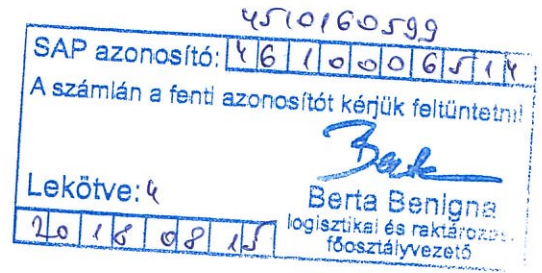 4510160599
SAP azonosító: 4610006514
A számlán a fenti azonosítót kérjük feltüntetni!
Lekötve: 4
Berta Benigna
logisztikai és raktározási
főosztályvezető
2018 08 15